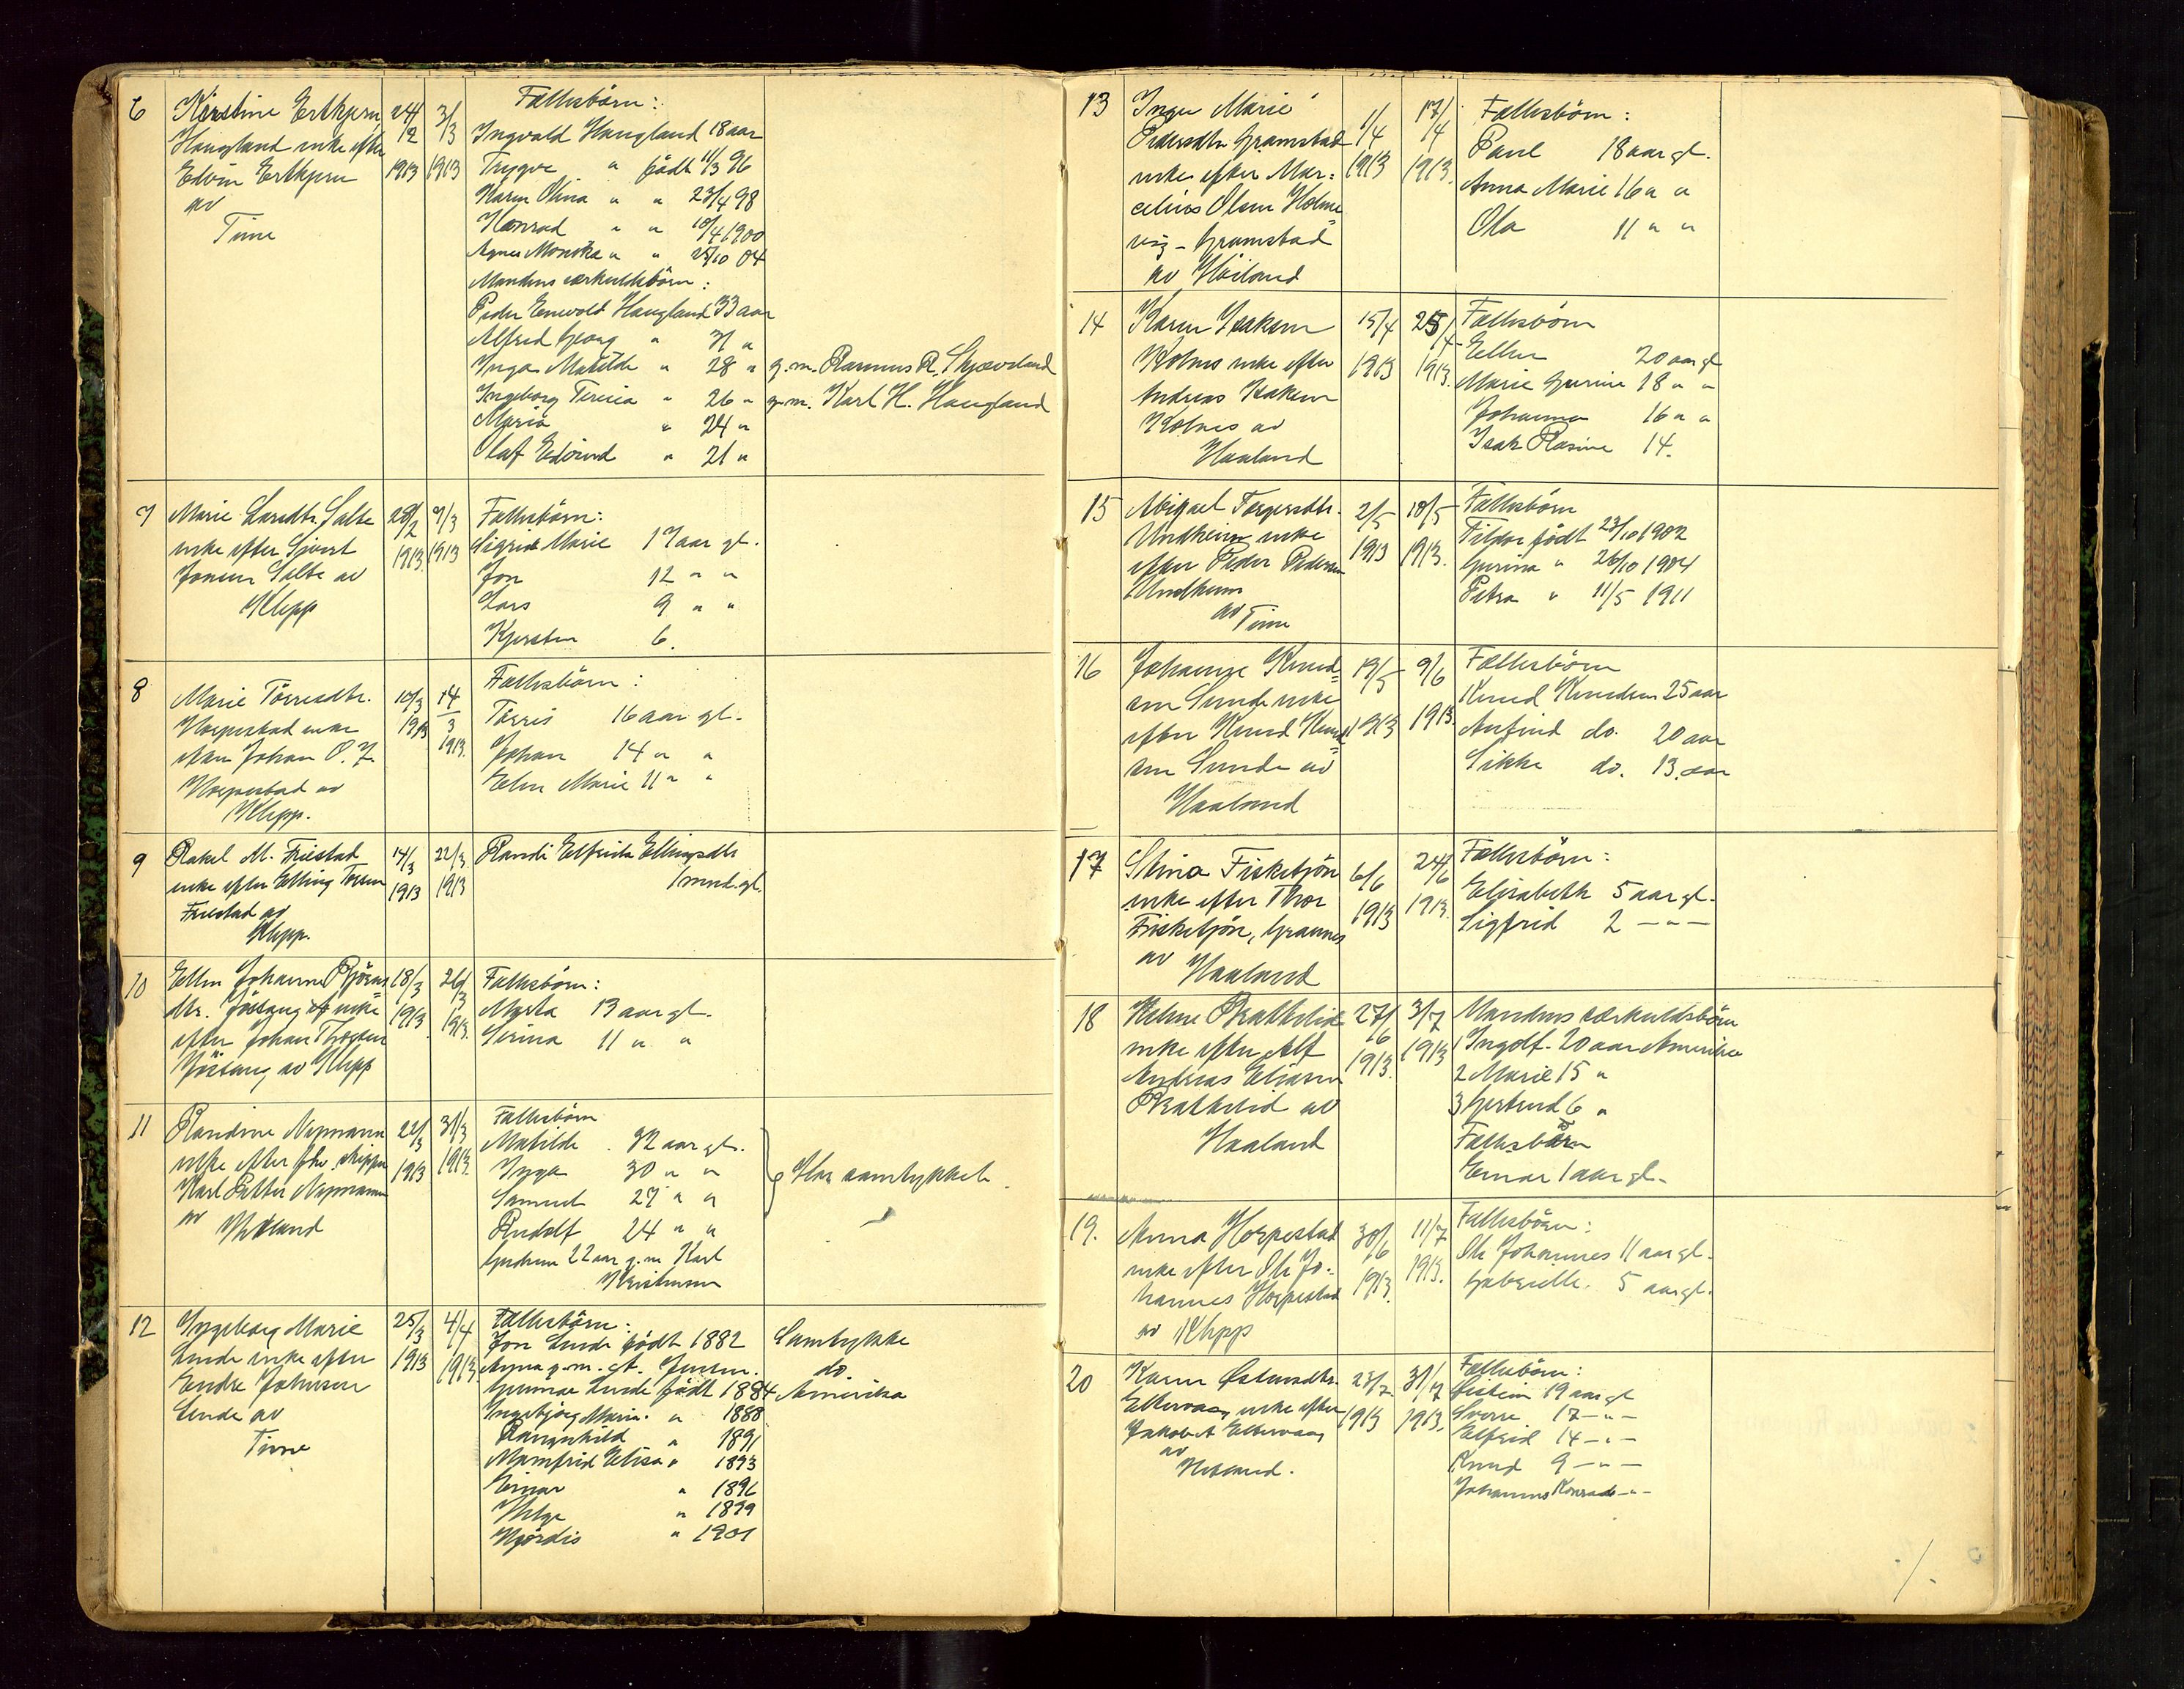 6 Kirstine Ertkjern 24/2 3/3 Fællesbörn:
Haugland enke efter 1913 1913 Ingvald Haugland 18 aar
Edvin Ertkjern Trygve " födt 11/3 96
av Karen Olina " " 23/4 98
Time Konrad " " 10/4 1900
Agnes Monika " " 25/10 04
Mandens særkuldsbörn:
Peder Enevold Haugland 33 aar
Alfred Georg " 31 "
Inga Matilde " 28 " g.m. Rasmus R. Skjævsland
Ingeborg Tereia " 26 " g.m. Karl H. Haugland
Maria " 24 "
Olaf Edvind " 21 "
7 Marie Larsdtr. Salte 28/2 7/3 Fællesbörn:
enke efter Sivert 1913. 1913 Sigrid Marie 17 aar gl.
Jonsen Salte av Jon 12 " "
Klepp Lars 9 " "
Kjersten 6.
8 Marie Törresdtr. 10/3 14/3 Fællesbörn:
Horpestad enke 1913 1913. Törris 16 aar gl.
Johan O. J. Johan 14 " "
Horpestad av Elen Marie 11 " "
Klepp.
9 Rakel M. Friestad 14/3 22/3 Randi Elfrida Ellingsdtr
enke efter Elling 1913 1913 1 mnd. gl.
Friestad av
Klepp.
10 Ellen Johanne Björns= 18/3 26/3 Fællesbörn:
dtr. Jösang enke 1913 1913. Marta 13 aar gl.
efter Johan Serina 11 " "
Jösang av Klepp
11 Randine Nymann 22/3 31/3 Fællesbörn
enke efter fhv. skipper 1913 1913. Matilde 32 aar gl.
Karl Petter Nymann Inga 30 " "
av Samuel 27 " " Har samtykket.
Haaland Rudolf 24 " "
Gudrun 22 aar g.m. Karl
Kristensen
12 Ingeborg Marie 25/3 4/4 Fællesbörn:
Lende enke efter 1913 1913 Jon Lende födt 1882 Samtykke
Endre Johnsen Anna g.m. Jensen. do.
Lende av Gunnar Lende födt 1884 Amerika
Time Ingebjörg Marie " 1888
Rangnhild " 1891
Mamfrid Elisa " 1893
Einar " 1896
Helge " 1899
Hjördis " 1901
13 Inger Marie 1/4 17/4 Fællesbörn:
Pedersdtr. Gramstad 1913 1913. Paul 18 aar gl.
enke efter Mar= Anna Marie 16 " "
celius Olsen Holme Ola 11 " "
vig - Gramstad
av Höiland
14 Karen Isaksen 15/4 25/4 Fællesbörn
Kolnes enke efter 1913 1913. Ellen 20 aar gl
Andreas Isaksen Marie Gurine 18 " "
Kolnes av Johanna 16 " "
Haaland Isak Rasine 14.
15 Abigael Torgersdtr. 2/5 10/5 Fællesbörn
Undheim enke 1913 1913. Filpor födt 23/10 1902
efter Peder Pedersen Gurina " 26/10 1904
Undheim Petra " 11/5 1911
av Time
16 Johanne Knud= 19/5 9/6 Fællesbörn
sen Sunde enke 1913 1913. Knud Knudsen 25 aar
efter Knud Knud= Anfind do. 20 aar
sen Sunde av Sikke do. 13. aar
Haaland
17 Stina Fisketjön 6/6 24/6 Fællesbörn:
enke efter Thor 1913 1913. Elisabeth 5 aar gl.
Fisketjön, Grannes Sigfrid 2 - " -
av Haaland
18 Helene Brattelid 27/6 3/7 Mandens særkuldsbörn
enke efter Alf 1913. 1913 1 Ingolf. 20 aar Amerika
Andreas Eliasen 2 Marie 15 "
Brattelid av 3 Gertrud 6 "
Haaland Fællesbarn
Einar 1 aar gl.
19. Anna Horpestad 30/6 11/7 Fællesbörn:
enke efter Ole Jo- 1913. 1913. Ole Johannes 11 aar gl.
hannes Horpestad Gabrielle. 5 aar gl.
av Klepp
20 Karen Östensdtr. 23/7 31/7 Fællesbörn:
Eltervaag enke efter 1913 1913. Östein 19 aar gl
Jakob A Eltervaag Sverre 17 - " -
av Elfrid 14 - " -
Haaland. Knud 9 - " -
Johannes Konrad - " -